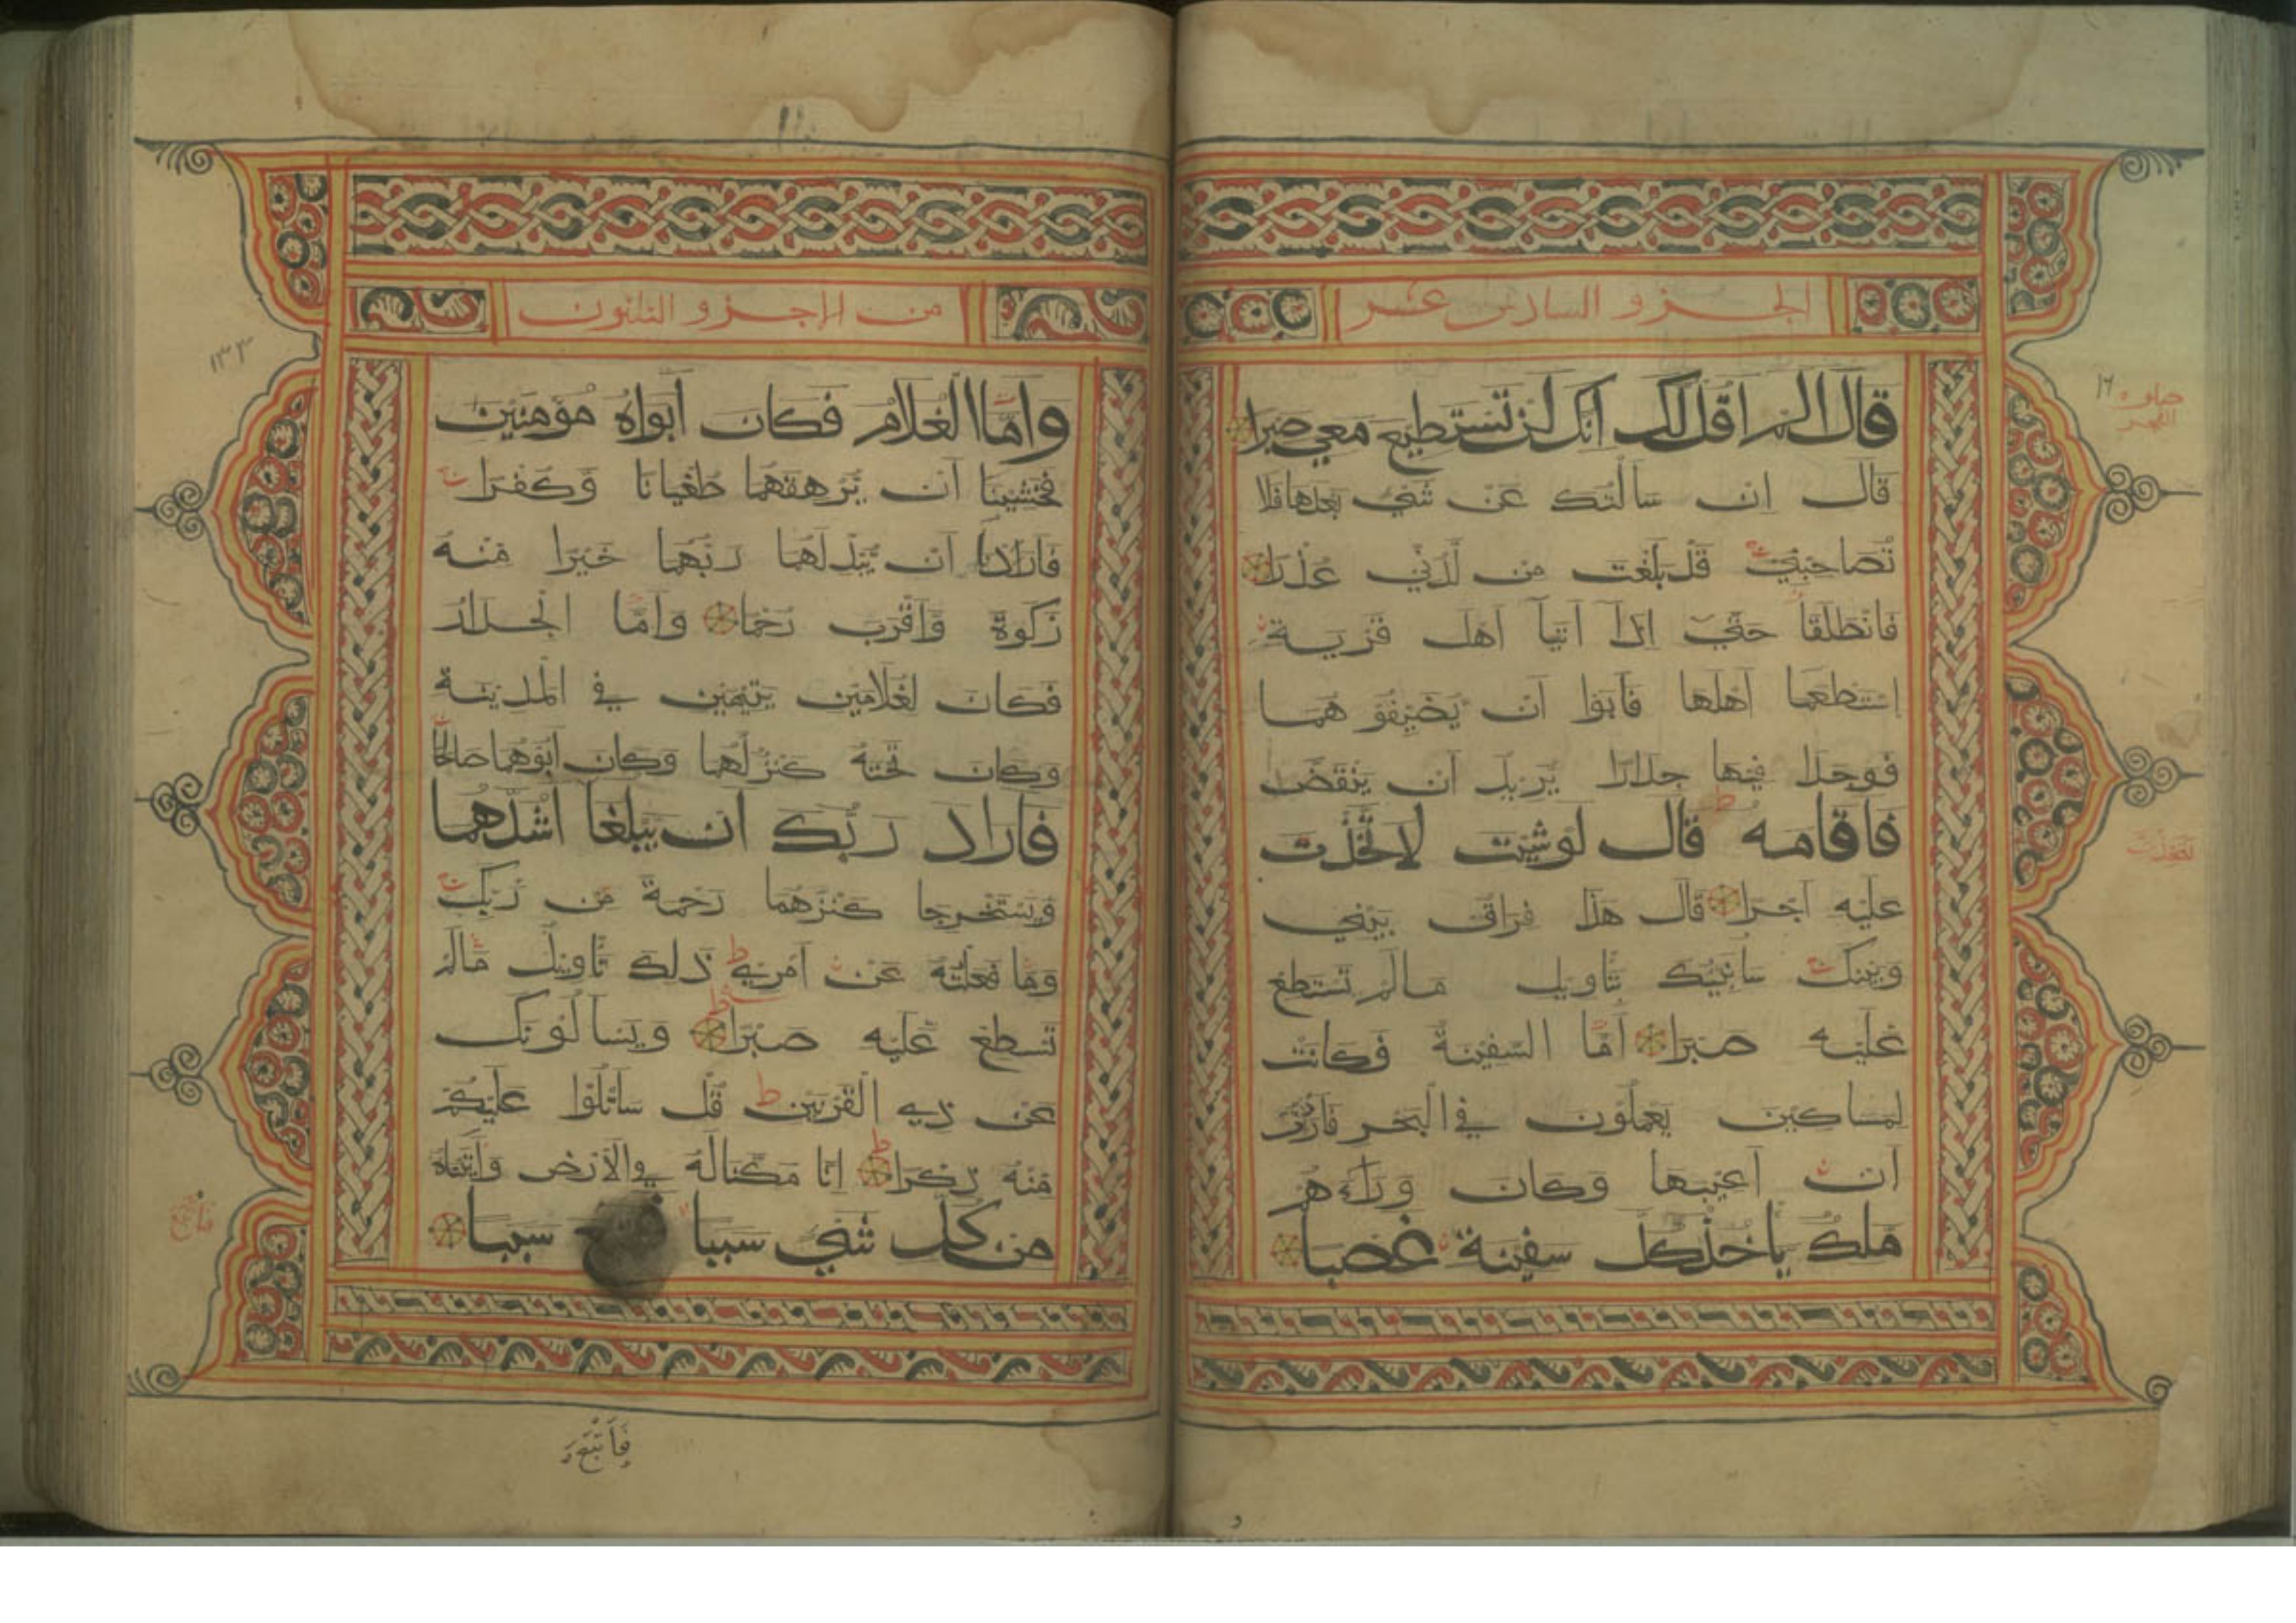 الجزو السادس عشر
قال الم اقل لك انك لن تستطيع معي صبرا
قال ان سالتك عن شي بعدها فلا
تصاحبني قد بلغت من لدني عذرا
فانطلقا حتي اذا اتيا اهل قرية
استطعما اهلها فابوا ان يضيفو هما
فوجدا فيها جدارا يريد ان ينقض
فاقامه قال لو شيت لاتخذت
عليه اجرا قال هذا فراق بيني
وبينك سانبيك بتاويل مالم تستطع
عليه صبرا اما السفينة فكانت
لمساكين يعملون في البحر فاردت
ان اعيبها وكان وراءهم
ملك ياخذ كل سفينة غصبا
من الاجزو الثلثون
واما الغلام فكان ابواه مؤمنين
فخشينا ان يرهقهما طغيانا وكفرا
فاردنا ان يبدلهما ربهما خيرا منه
زكوة واقرب رحما واما الجدار
فكان لغلامين يتيمين في المدينة
وكان تحته كنز لهما وكان ابوهما صالحا
فاراد ربك ان يبلغا اشدهما
ويستخرجا كنزهما رحمة من ربك
وما فعلته عن امري ذلك تاويل مالم
تسطع عليه صبرا ويسالونك
عن ذي القرنين قل ساتلوا عليكم
منه ذكرا انا مكنا له في الارض واتيناه
من كل شي سببا سببا
فاتبع
١٣٣